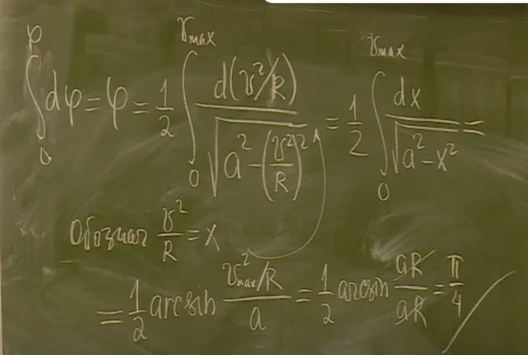 ∫₀^φ dφ = φ = 1/2 ∫₀^{v_max} d(v²/R) / √(a² - (v²/R)²) = 1/2 ∫₀^{v_max} dx / √(a² - x²) =
Обознач v²/R = x
= 1/2 arcsin (v²_max/R)/a = 1/2 arcsin aR/aR = π/4